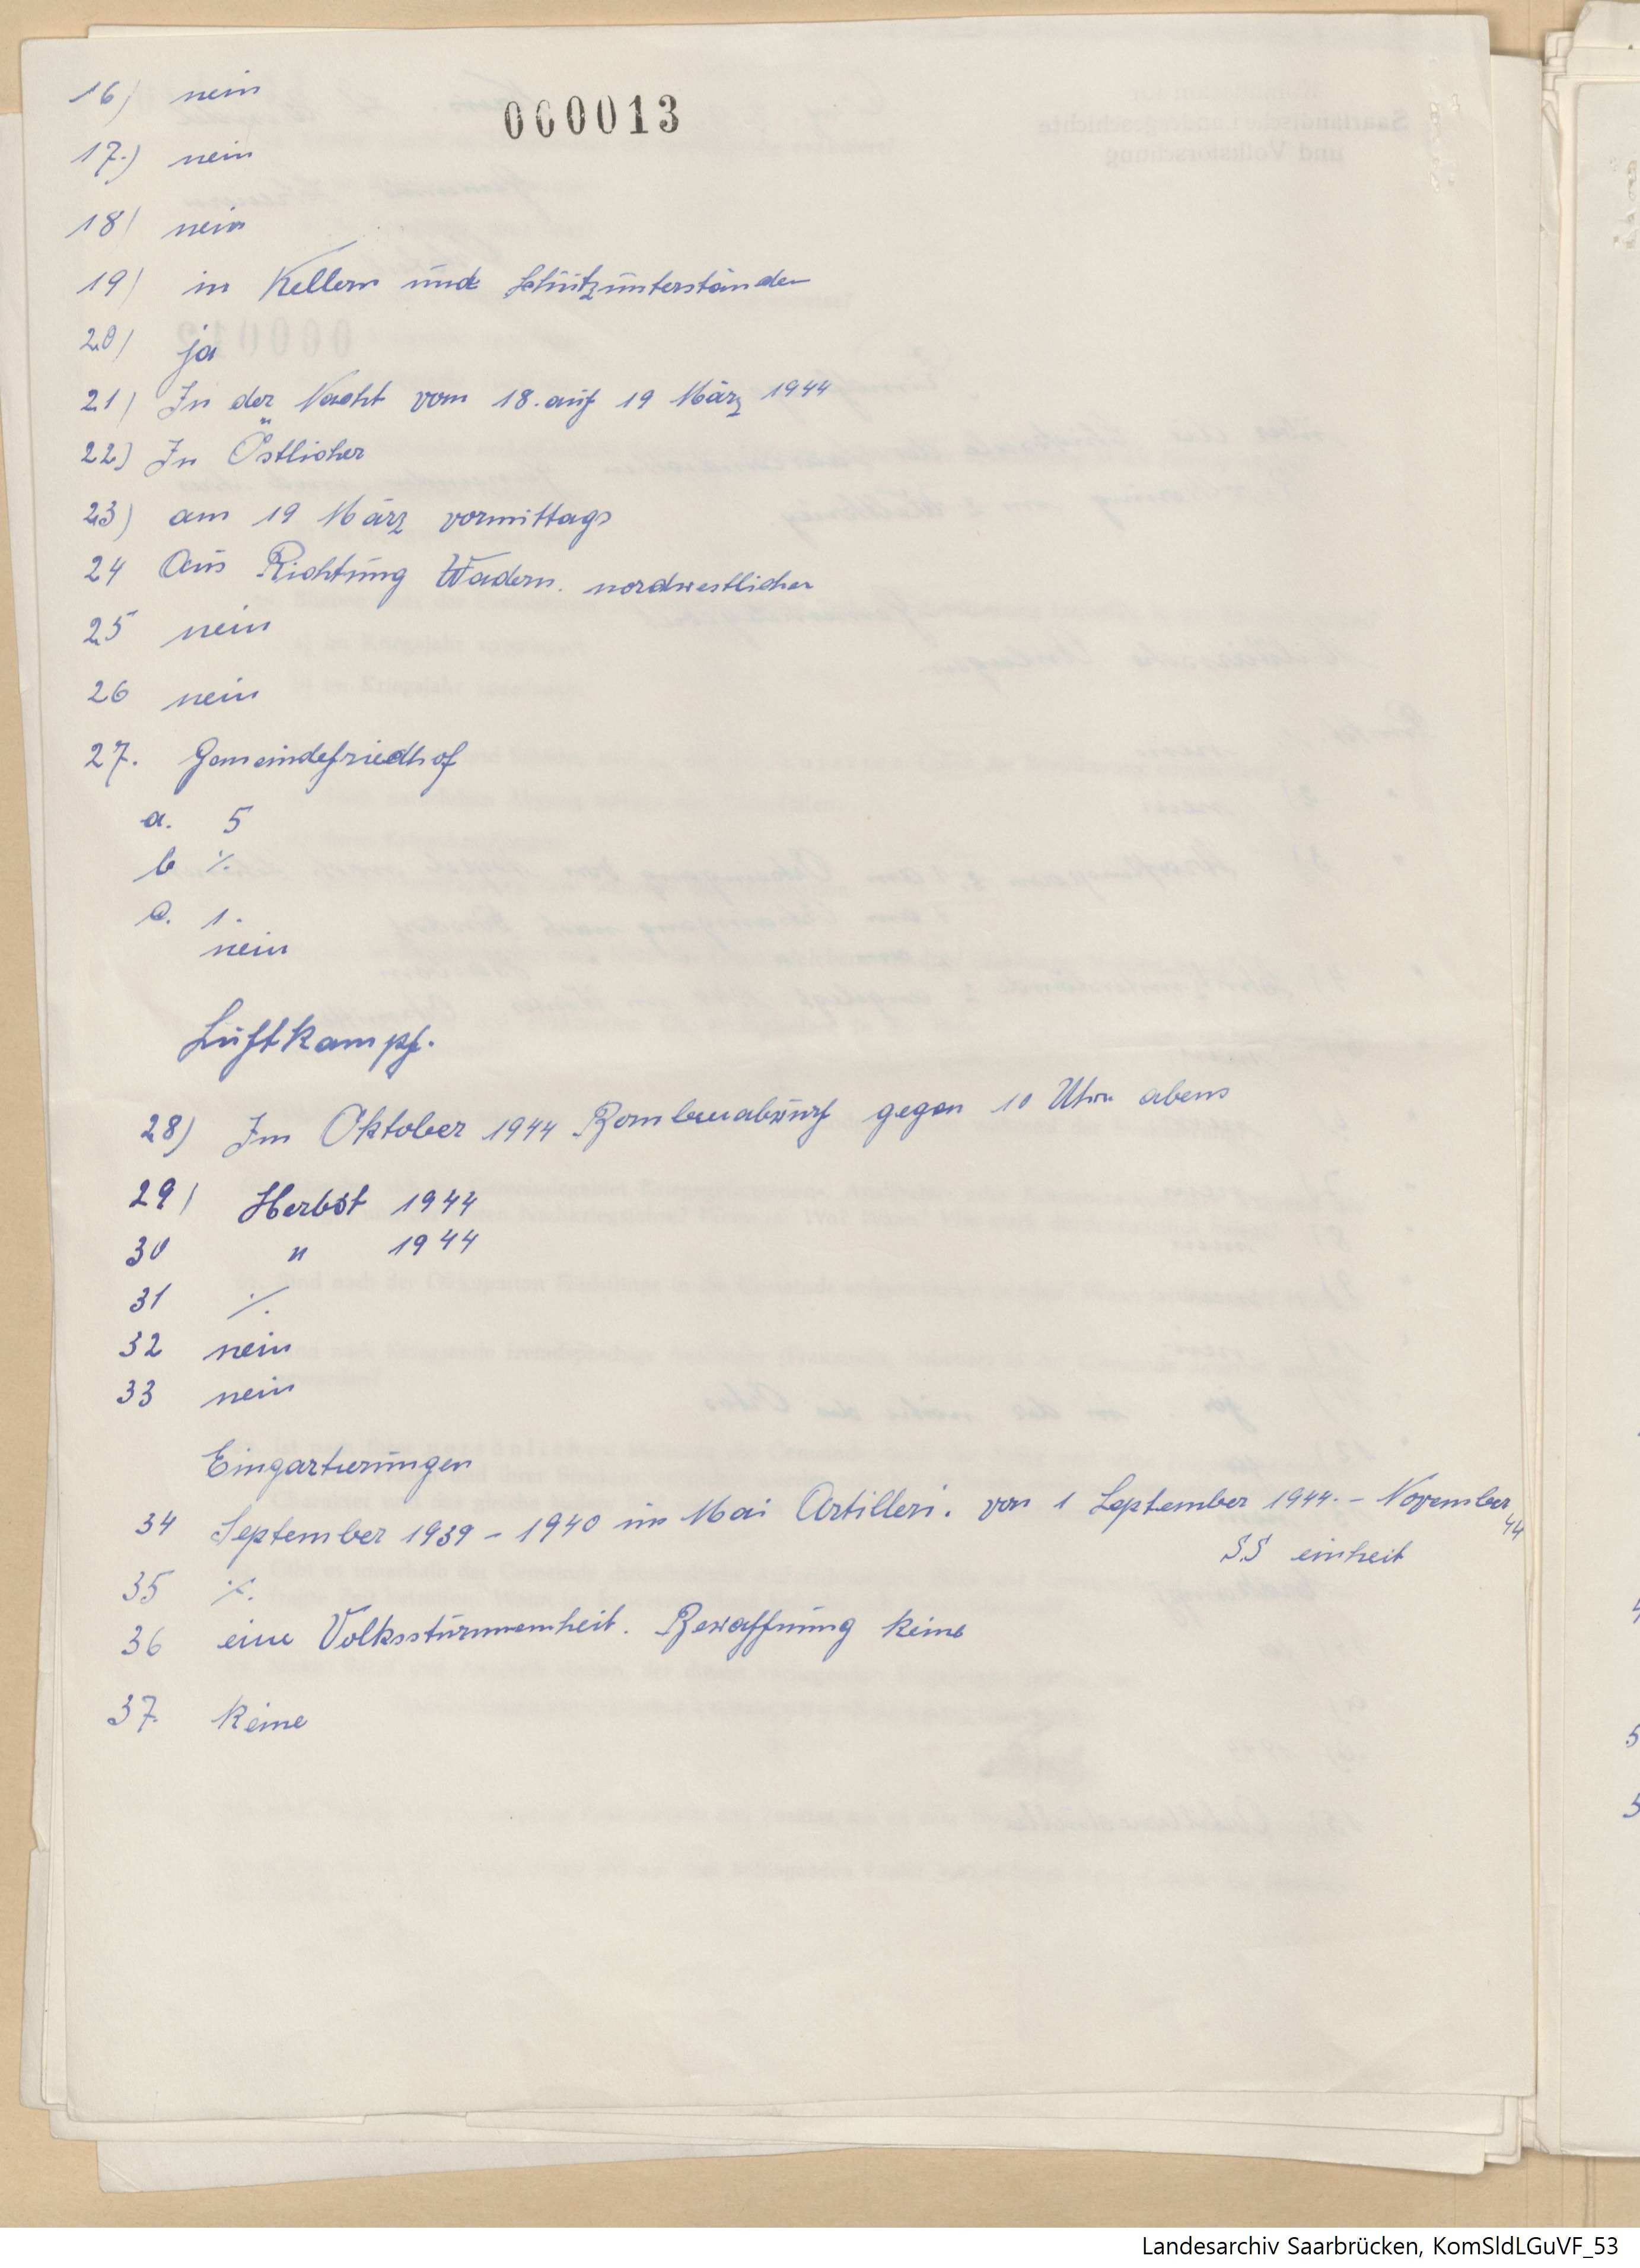 000013
16) nein
17.) nein
18) nein
19) in Kellern und Schutzunterständen
20) ja
21) In der Nacht vom 18. auf 19 März 1944
22) In Östlicher
23) am 19 März vormittags
24 Aus Richtung Wadern. nordwestlicher
25 nein
26 nein
27. Gemeindefriedhof
a. 5
b ·/.
c. 1.
nein
Luftkampf.
28) Im Oktober 1944 Bombenabwurf gegen 10 Uhr abens
29) Herbst 1944
30 " 1944
31 ·/.
32 nein
33 nein
Eingartierungen
34 September 1939 - 1940 im Mai Artilleri. von 1 September 1944. - November 44
SS einheit
35 ·/.
36 eine Volkssturmeinheit. Bewaffnung keine
37. keine
Landesarchiv Saarbrücken, KomSldLGuVF_53